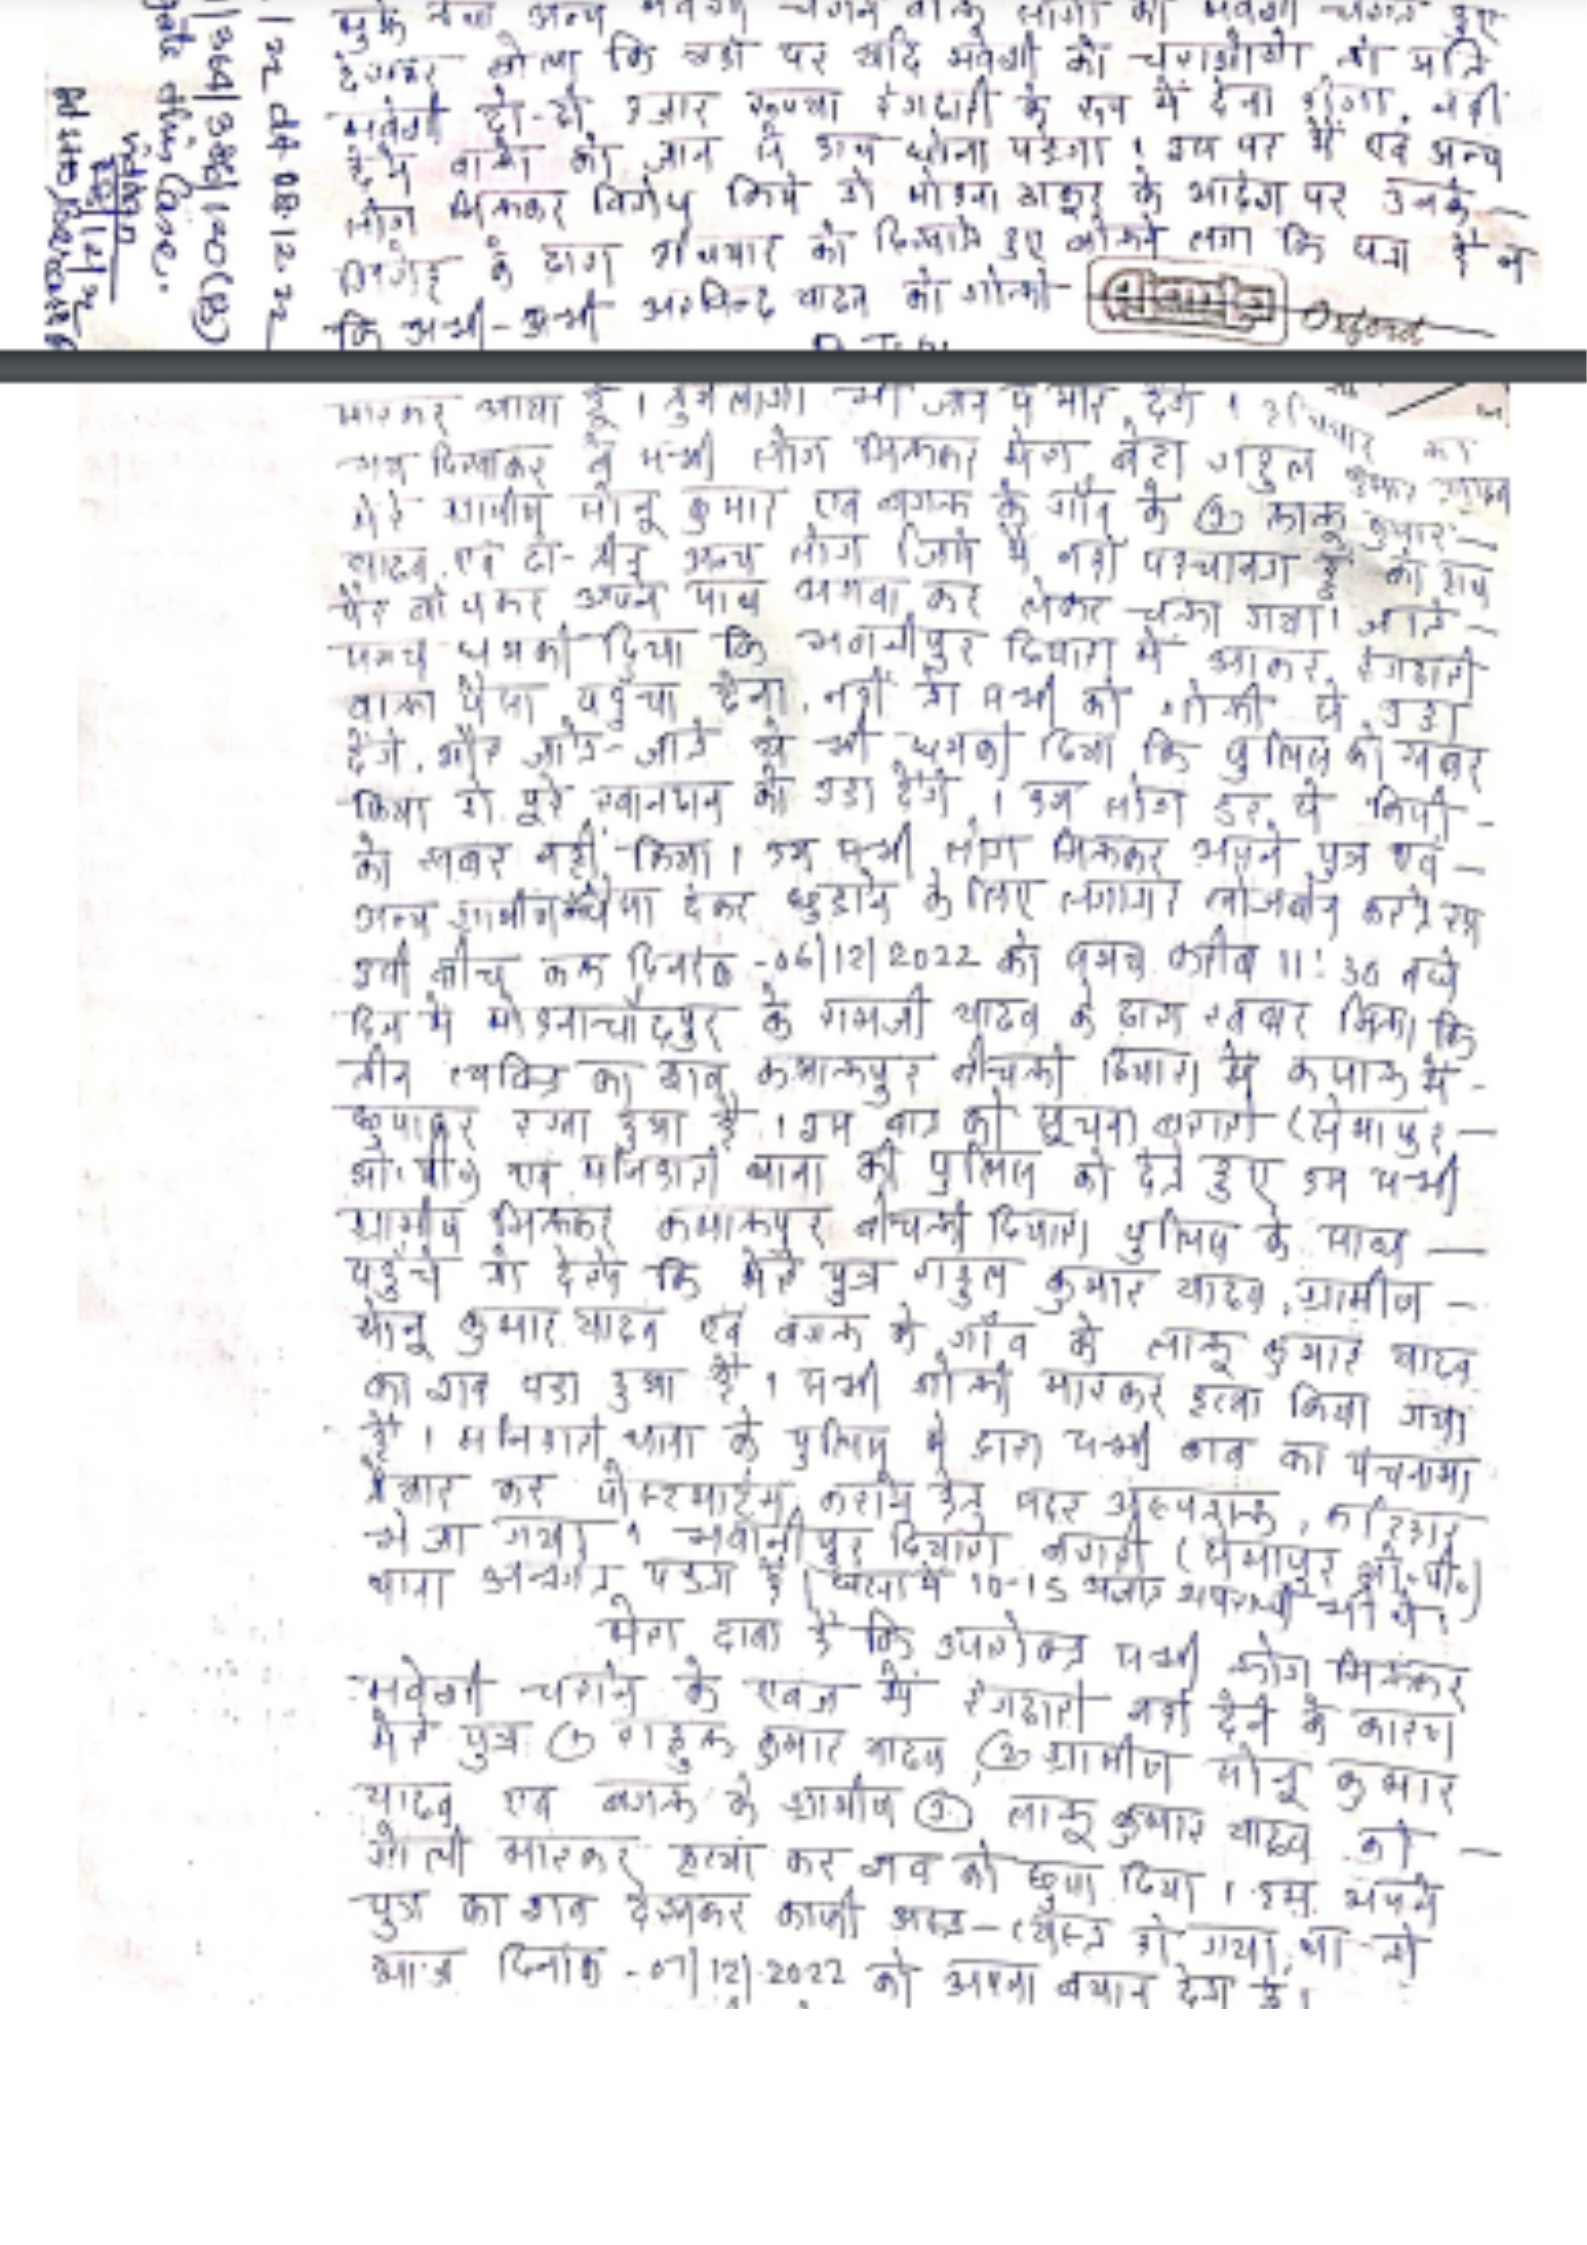 मुझे तथा अन्य मवेशी चराने वाले लोगों को मवेशी चराते हुए
देखकर बोला कि यहाँ पर यदि मवेशी को चराओगे तो प्रति
मवेशी दो-दो हजार रूपया रंगदारी के रूप में देना होगा, नहीं
देने वालों को जान से हाथ धोना पड़ेगा। इस पर मैं एवं अन्य
लोग मिलकर विरोध किये तो मोहना ठाकुर के आदेश पर उनके
गिरोह के द्वारा हथियार को दिखाते हुए बोलने लगा कि पता है न
कि अभी-अभी अरविन्द यादव को गोली
Oxford
P.T.O.
/22 dt 08.12.22
/364/386/120(B)
मारकर आया हूँ। तुमलोगों भी जान से मार देंगे। हथियार का
भय दिखाकर वे सभी लोग मिलकर मेरा बेटा राहुल कुमार यादव
मेरे ग्रामीण सोनू कुमार एवं बगल के गाँव के लालू कुमार
यादव एवं दो-तीन अन्य लोग जिसे मैं नहीं पहचानता हूँ को हाथ
पैर बाँधकर अपने साथ अगवा कर लेकर चला गया। जाते
समय धमकी दिया कि भवानीपुर दियारा में आकर रंगदारी
वाला पैसा पहुँचा देना, नहीं तो सभी को गोली से उड़ा
देंगे, और जाते-जाते ये भी धमकी दिया कि पुलिस को खबर
किया तो पूरे खानदान को उड़ा देंगे। हम लोग डर से किसी
को खबर नहीं किया। हम सभी लोग मिलकर अपने पुत्र एवं
अन्य ग्रामीण पैसा देकर छुड़ाने के लिए लगातार खोजबीन करते रहे
इसी बीच कल दिनांक -06/12/2022 को समय करीब 11:30 बजे
दिन में मोहनाचाँदपुर के रामजी यादव के द्वारा खबर मिला कि
तीन व्यक्ति का शव कमालपुर बीचली दियारा में कपाल में
छुपाकर रखा हुआ है। इस बात की सूचना बरारी (सेमापुर
ओ०पी०) एवं मनिहारी थाना की पुलिस को देते हुए हम सभी
ग्रामीण मिलकर कमालपुर बीचली दियारा पुलिस के साथ
पहुँचे तो देखे कि मेरे पुत्र राहुल कुमार यादव, ग्रामीण
सोनू कुमार यादव एवं बगल के गाँव के लालू कुमार यादव
का शव पड़ा हुआ है। सभी गोली मारकर हत्या किया गया
है। मनिहारी थाना के पुलिस के द्वारा सभी शव का पंचनामा
तैयार कर पोस्टमार्टम कराने हेतु सदर अस्पताल, कटिहार
भेजा गया। भवानीपुर दियारा बरारी (सेमापुर ओ०पी०)
थाना अन्तर्गत पड़ता है। घटना में 10-15 अज्ञात अपराधी भी थे।
मेरा दावा है कि उपरोक्त सभी लोग मिलकर
मवेशी चराने के एवज में रंगदारी नहीं देने के कारण
मेरे पुत्र (1) राहुल कुमार यादव, (2) ग्रामीण सोनू कुमार
यादव एवं बगल के ग्रामीण (3) लालू कुमार यादव को
गोली मारकर हत्या कर शव को छुपा दिया। हम अपने
पुत्र का शव देखकर काफी अस्त-व्यस्त हो गया था तो
आज दिनांक -07/12/2022 को अपना बयान देता हूँ।